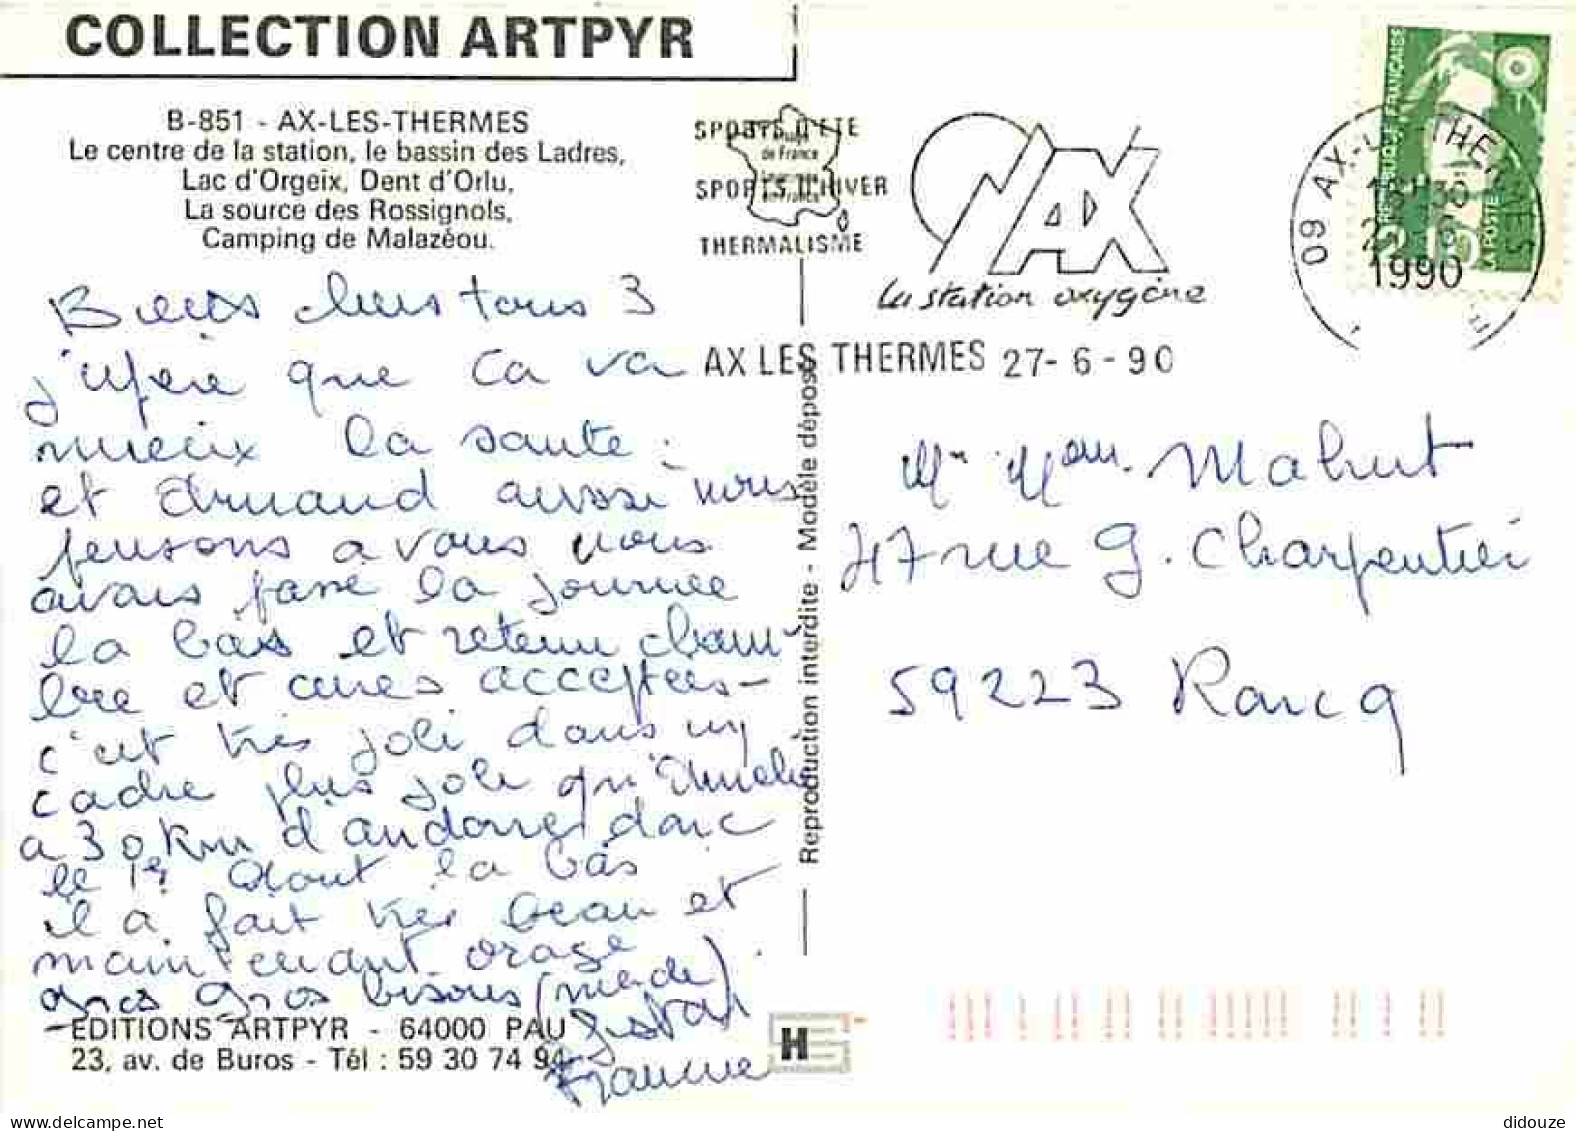 COLLECTION ARTPYR
B-851 - AX-LES-THERMES
Le centre de la station, le bassin des Ladres,
Lac d'Orgeix, Dent d'Orlu,
La source des Rossignols,
Camping de Malazéou.
SPORTS D'ÉTÉ
SPORTS D'HIVER
THERMALISME
de France
AX
La station oxygène
AX LES THERMES 27-6-90
09 AX-LES-THERMES
18H30
1990
RÉPUBLIQUE FRANÇAISE
LA POSTE
chers tous 3
j'espère que ça va
mieux la santé
et Armand aussi nous
pensons a vous nous
avons passé la journée
la bas et retenu cham-
bre et cures acceptées-
c'est très joli dans un
cadre plus joli qu'
a 30 km d'andorre donc
le 19 Aout la bas
il a fait très beau et
maintenant orage
gros gros bisous
Francine
Mr Mam. Mahut
47 rue G. Charpentier
59223 Roncq
Reproduction interdite - Modèle déposé
EDITIONS ARTPYR - 64000 PAU
23, av. de Buros - Tél : 59 30 74 94
H
didouze